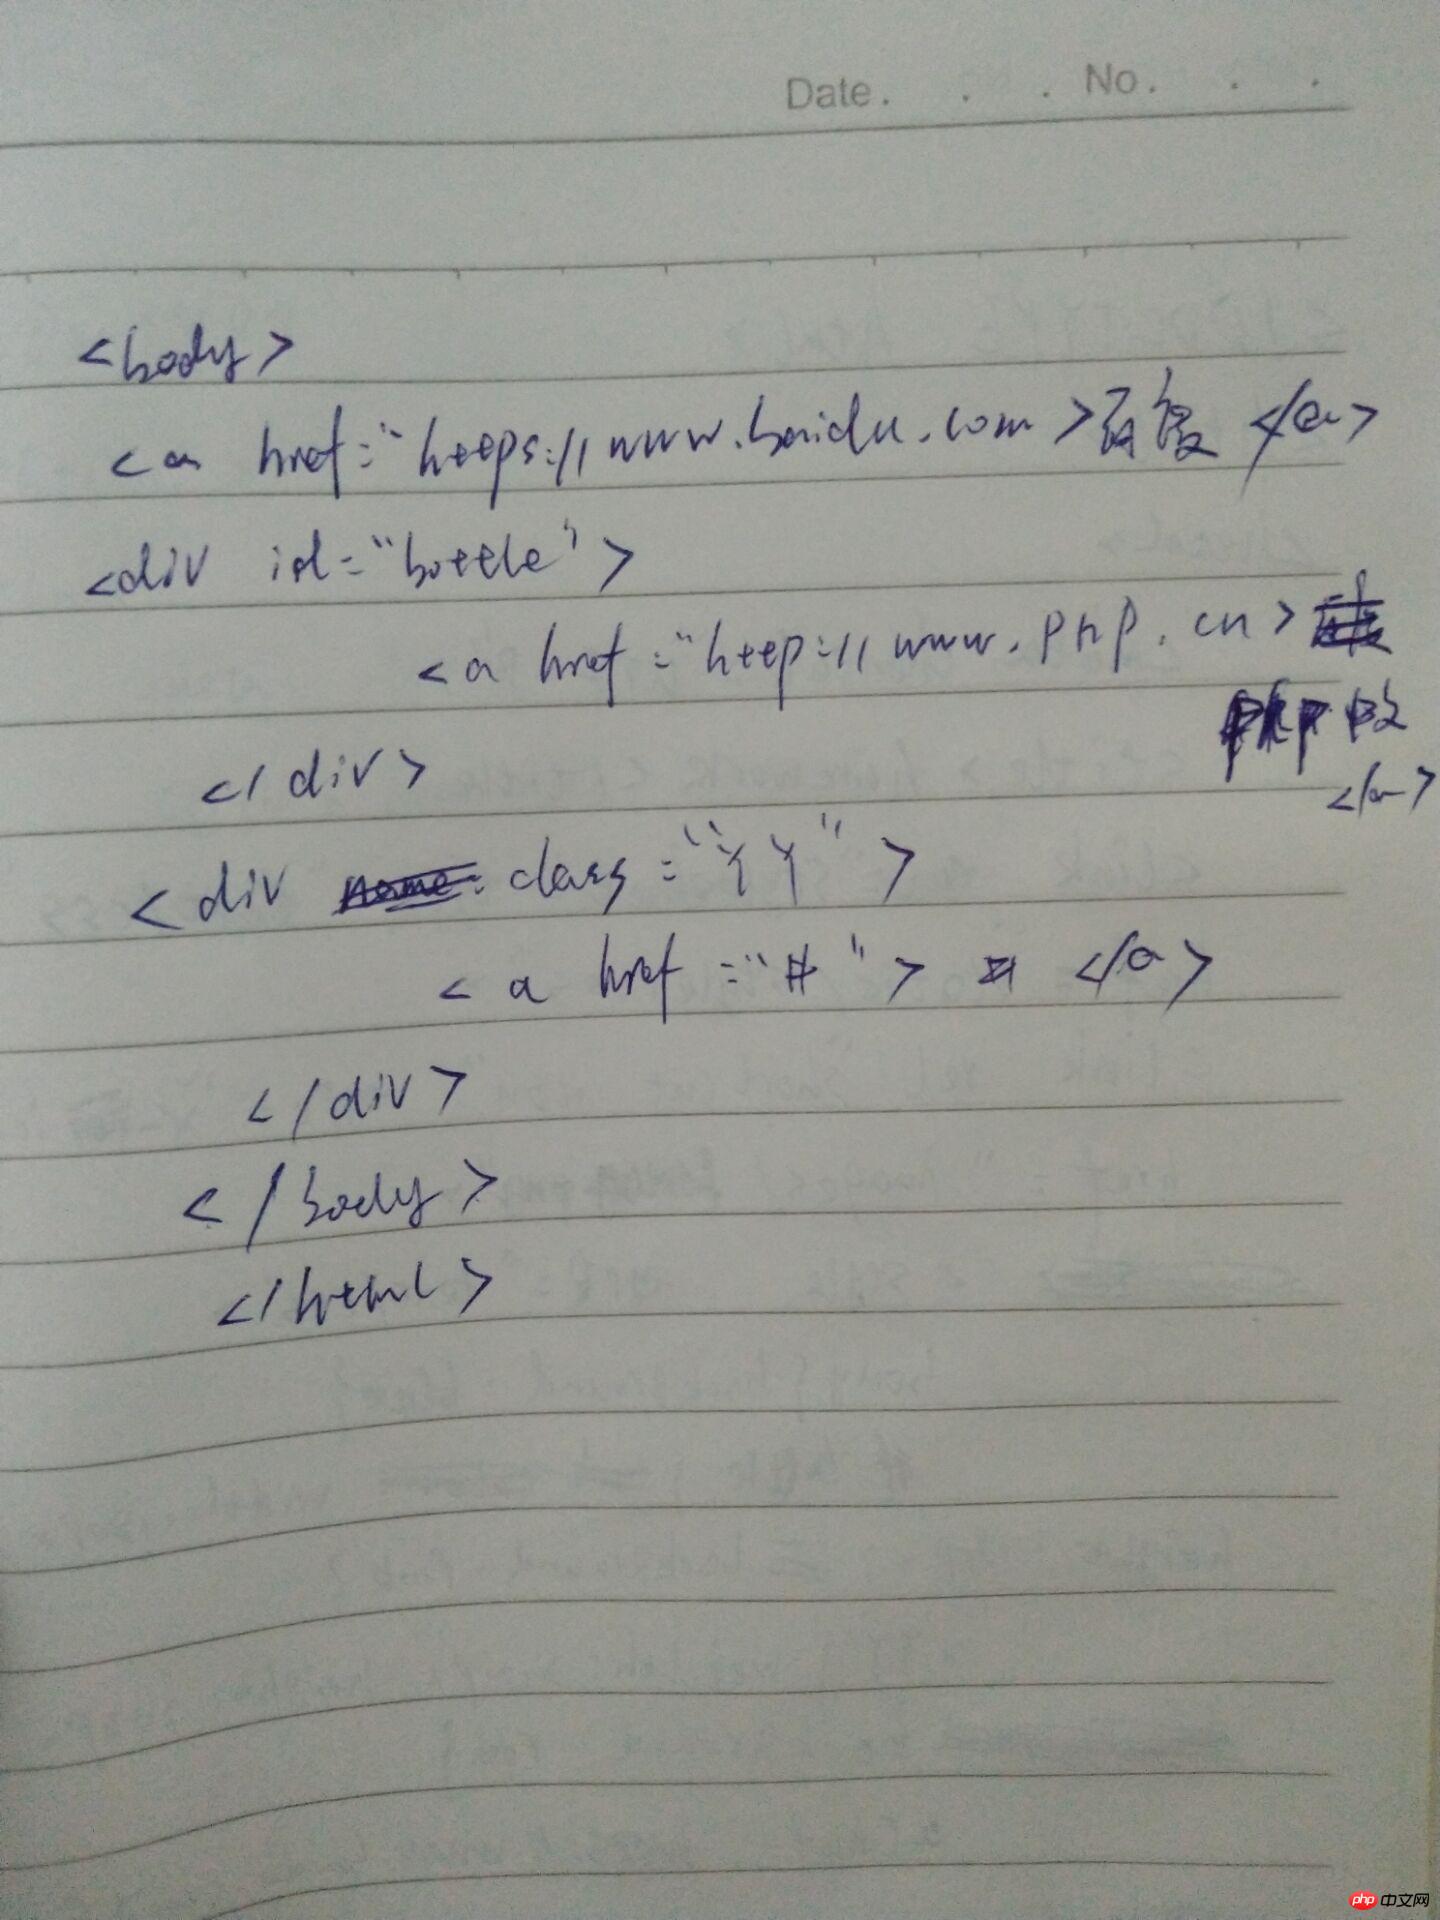 Date. No.
<body>
<a href="https://www.baidu.com>百度</a>
<div id="bottle">
<a href="http://www.php.cn>
php中文
</a>
</div>
<div class="YY">
<a href="#"> # </a>
</div>
</body>
</html>
php中文网